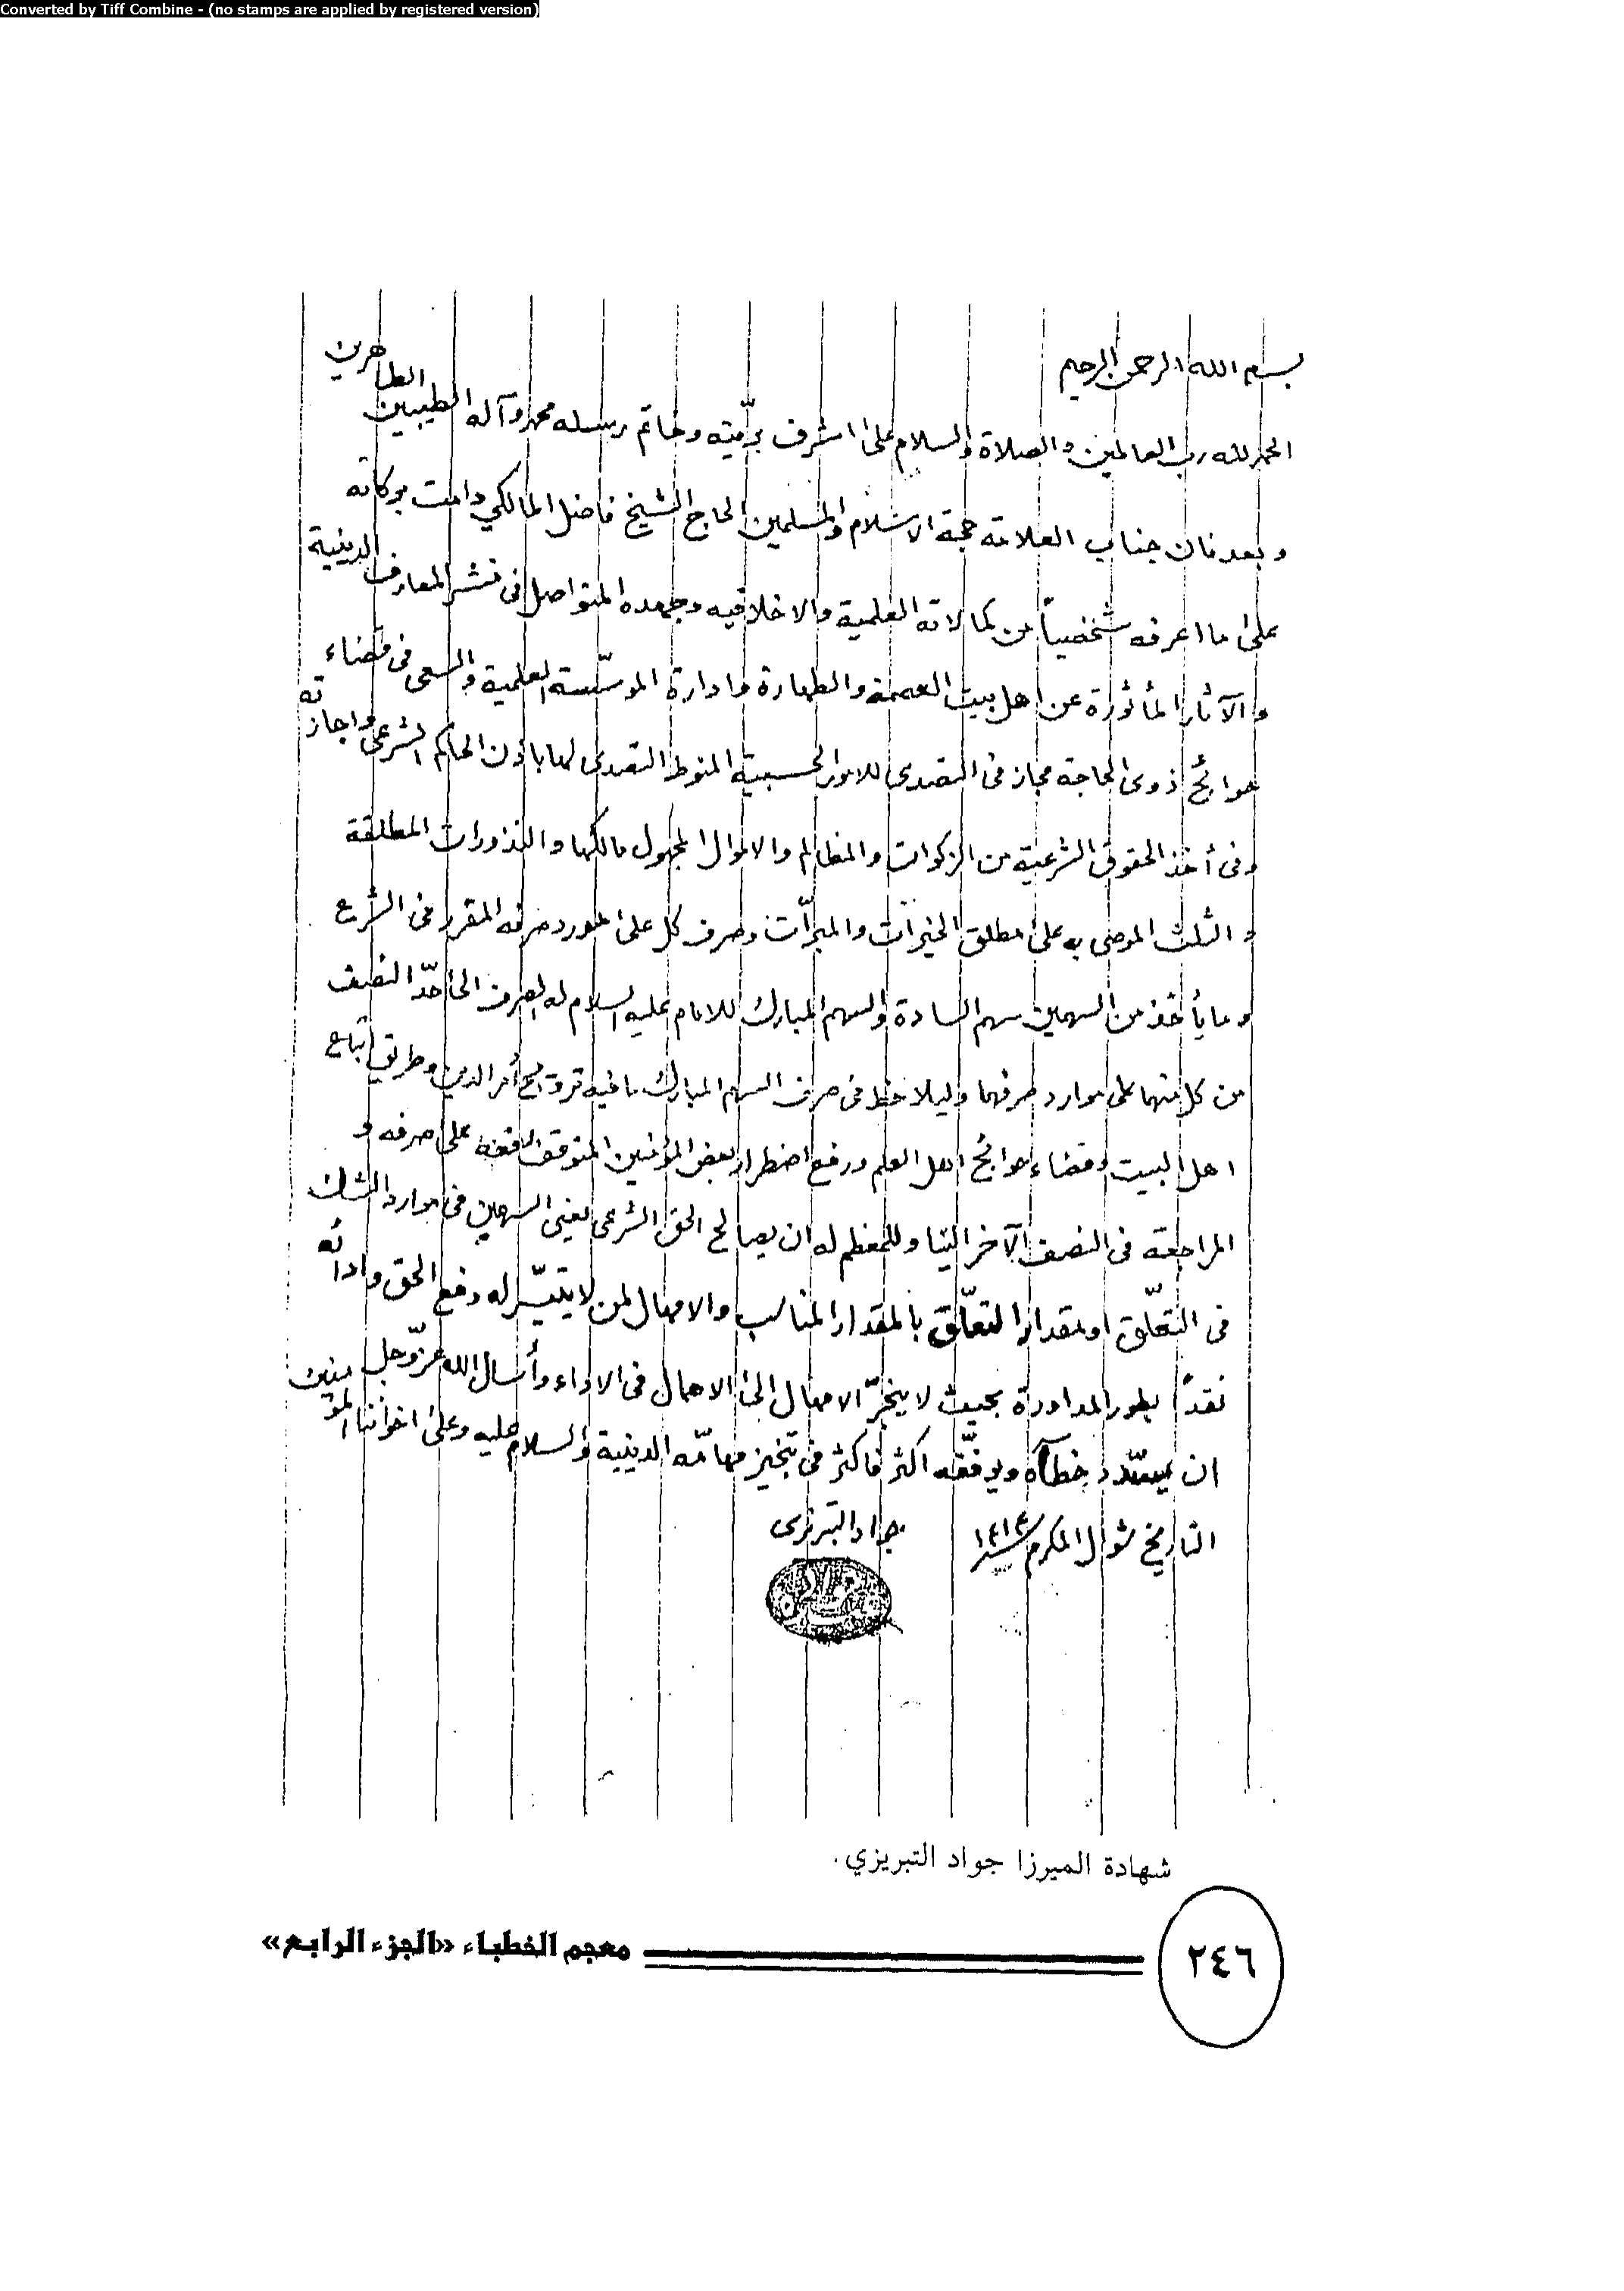 Converted by Tiff Combine - (no stamps are applied by registered version)
بسم الله الرحمن الرحيم
الحمد لله رب العالمين والصلاة والسلام على اشرف بريّته وخاتم رسله محمد وآله الطيبين الطاهرين
وبعد فان جناب العلامة حجة الاسلام والمسلمين الحاج الشيخ فاضل المالكي دامت بركاته
على ما اعرفه شخصياً من كمالاته العلمية والاخلاقيه وجهده المتواصل في نشر المعارف الدينية
والآثار المأثورة عن اهل بيت العصمة والطهارة وادارة الموسّسة العلمية والسعى فى قضاء
حوائج ذوى الحاجة مجاز فى التصدى للامور الحسبية المنوط التصدى لها باذن الحاكم الشرعى واجازته
وفى أخذ الحقوق الشرعية من الزكوات والمظالم والاموال المجهول مالكها والنذورات المطلقة
والثلث الموصى به على مطلق الخيرات والمبرّات وصرف كل على مورد صرفه المقرر فى الشرع
وما يأخذ من السهمين سهم السادة والسهم المبارك للامام عليه السلام له الصرف الى حدّ النصف
من كل منهما على موارد صرفهما وليلاحظ فى صرف السهم المبارك ما فيه ترويج أمر الدين وطريق اتباع
اهل البيت وقضاء حوائج اهل العلم ورفع اضطرار بعض المؤمنين المتوقف رفعه على صرفه و
المراجعة فى النصف الآخر الينا وللمعظم له ان يصالح الحق الشرعى يعنى السهمين فى موارد الشك
فى التعلّق او مقدار التعلّق بالمقدار المناسب والامهال لمن لا يتيسّر له دفع الحق وادائه
نقداً بطور المداورة بحيث لا ينجرّ الامهال الى الاهمال فى الاداء وأسال الله عزّ وجل
ان يسدد خطاه ويوفّقه اكثر فاكثر فى تنجيز مهامّه الدينية والسلام عليه وعلى اخواننا المؤمنين
التاريخ شوال المكرم ١٤١٤
جواد التبريزى
شهادة الميرزا جواد التبريزي.
معجم الخطباء «الجزء الرابع»
٢٤٦